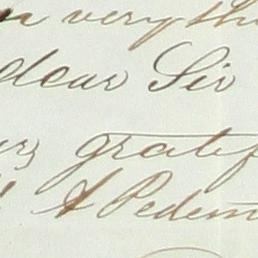 very
dear Sir
gratef
A Pedem